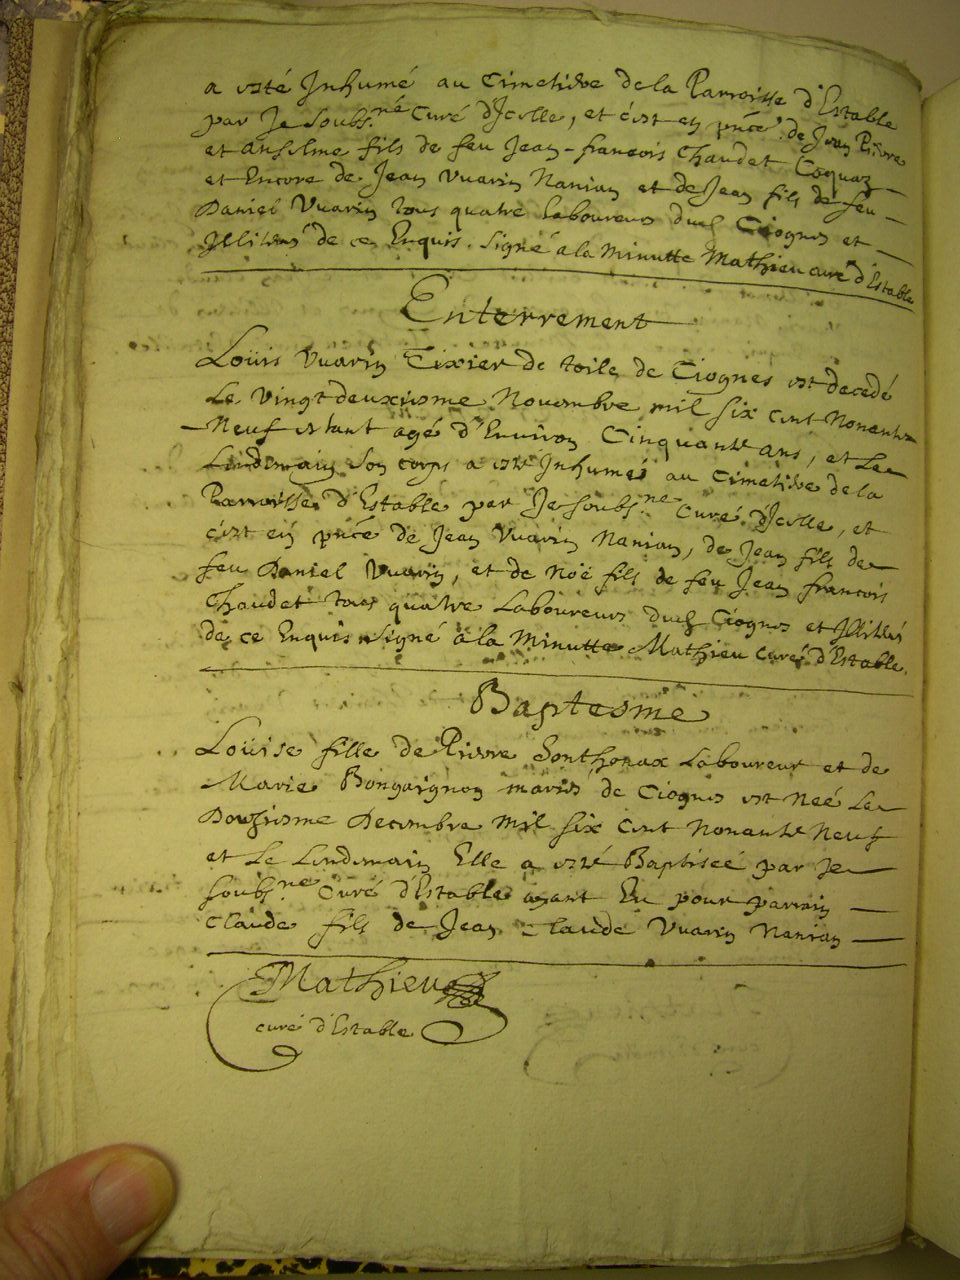 a esté Inhumé au Cimetiére de la Parroisse d'Estable
par Je Soubs.né Curé d'Icelle, et c'est en pnce de Jean Pierre
et Anselme fils de feu Jean-françois Chaudet Coquaz
et Encore de Jean Vuarin Nanian et de Jean fils de feu
Daniel Vuarin tous quatre laboureurs dud Ciognes et
Illiterés de ce Enquis. Signé a la Minutte Mathieu curé d'Estable
Enterrement
Loüis Vuarin Tixier de toile de Ciognes est decedé
Le Vingt deuxiesme Nouembre mil six cent Nonante
Neuf estant agé d'Environ Cinquante ans, et Le
Lendemain son corps a esté Inhumé au Cimetiére de la
Parroisse d'Estable par Je soubs.né Curé d'Icelle, et
c'est en pnce de Jean Vuarin Nanian, de Jean fils de
feu Daniel Vuarin, et de Noé fils de feu Jean françois
Chaudet tous quatre Laboureurs dud Ciognes et Illiterés
de ce Enquis signé a la Minutte Mathieu curé d'Estable.
Baptesme
Loüise fille de Pierre Sonthonax Laboureur et de
Marie Bongaignon mariés de Ciognes est Neé Le
Douziesme Decembre mil six cent Nonante Neuf
et Le Lendemain Elle a esté Baptiseé par Je
soubs.né Curé d'Estable ayant Eu pour parrain
Claude fils de Jean Claude Vuarin Nanian
Mathieu
curé d'Estable